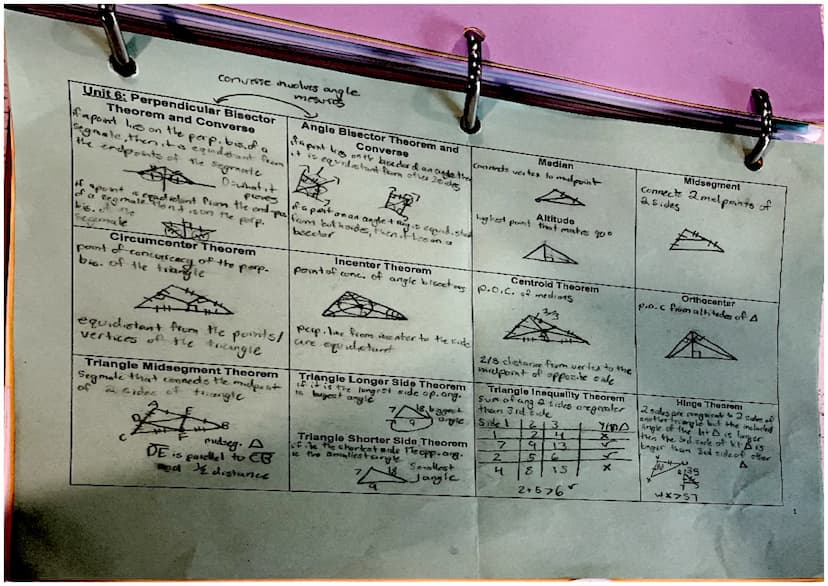 converse involves angle
measures
Unit 6: Perpendicular Bisector
Theorem and Converse
if a point lies on the perp. bis. of a
segmate, then it is equidistant from
the endpoints of the segmate
if a point is equidistant from the end pts
of a segmate then it is on the perp.
bis. of the
segmate
Angle Bisector Theorem and
Converse
if a point lies on the bisector of an angle then
it is equidistant from other 2 sides
if a point on an angle is equidistant
from both sides, then it lies on a
bisector
Median
Connects vertex to midpoint
Altitude
highest point that makes 90°
Midsegment
Connects 2 midpoints of
2 sides
Circumcenter Theorem
point of concurrecy of the perp.
bis. of the triangle
equidistant from the points/
vertices of the triangle
Incenter Theorem
point of conc. of angle bisectors
perp. line from incenter to the side
are equidistant
Centroid Theorem
P.O.C. of medians
2/3
2/3 distance from vertex to the
midpoint of opposite side
Orthocenter
P.O.C from altitudes of Δ
Triangle Midsegment Theorem
Segmate that connects the midpoint
of 2 sides of triangle
A
D
E
B
C
midseg. Δ
DE is parallel to CB
and ½ distance
Triangle Longer Side Theorem
if it is the longest side op. ang.
is largest angle
7 18 biggest
angle
9
Triangle Shorter Side Theorem
if its the shortest side the opp. ang.
is the smallest angle
7 18 Smallest
angle
9
Triangle Inequality Theorem
Sum of any 2 sides are greater
than 3rd side
Side 1 2 3 Y/N Δ
1 2 4 x
7 9 13 ✓
2 5 6 ✓
4 8 15 x
2+5>6 ✓
Hinge Theorem
2 sides are congruent to 2 sides of
another triangle but the included
angle of the 1st Δ is larger
then the 3rd side of 1st Δ is
longer than 3rd side of other
Δ
WX>ST
1